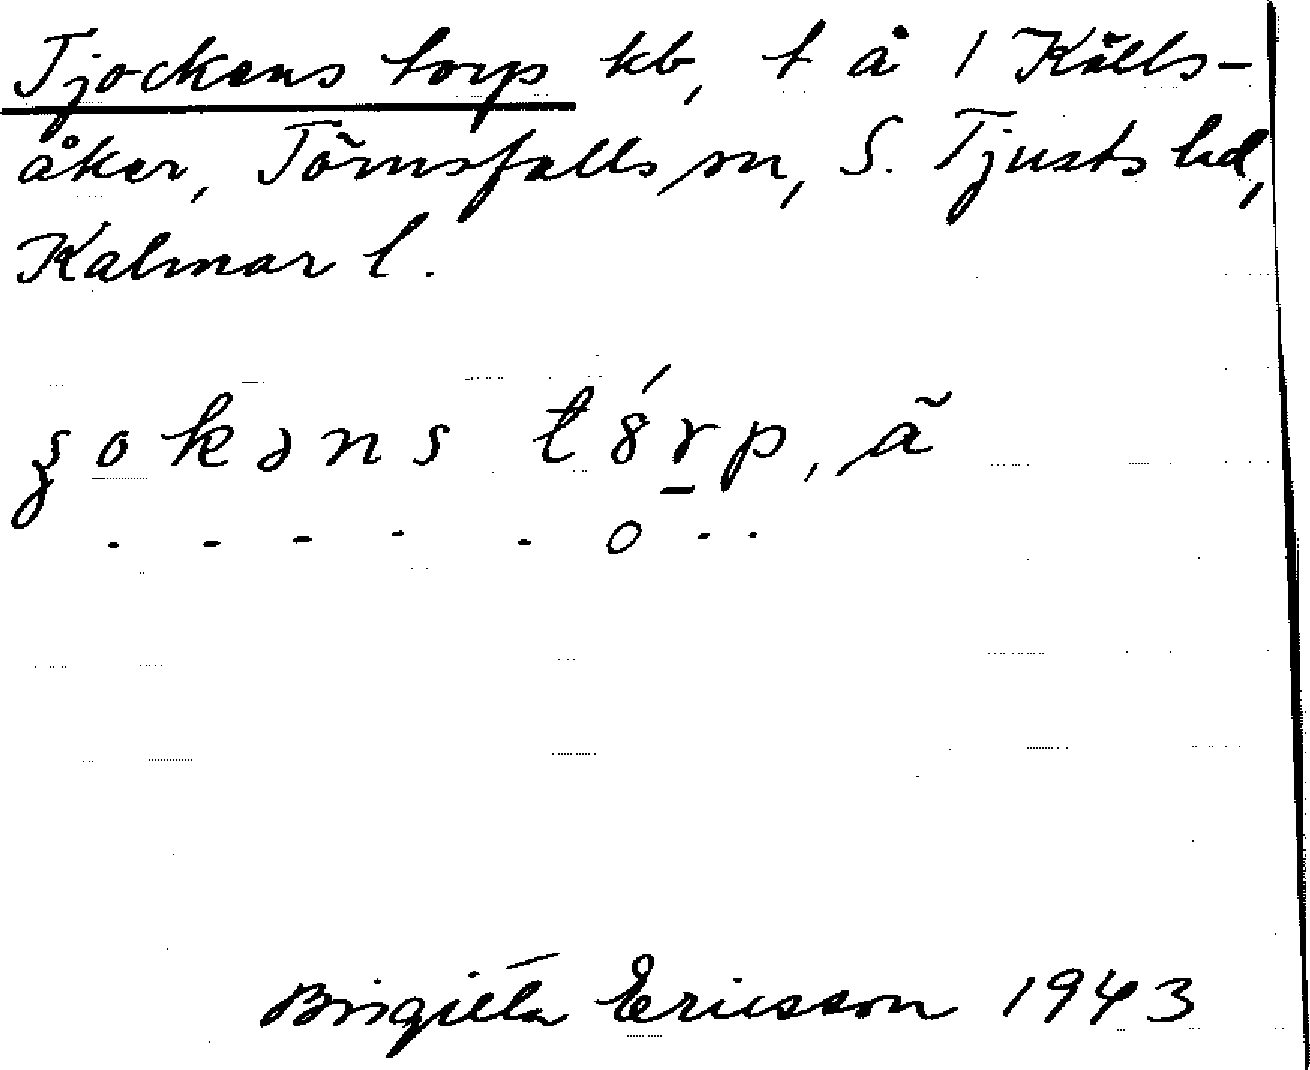 Tjockens torp kb, t å 1 Källs-
åker, Törnsfalls sn, S. Tjusts hd,
Kalmar l.
ʂokəns t8́rp, ã
. - - - - o - .
Birgitta Ericsson 1943